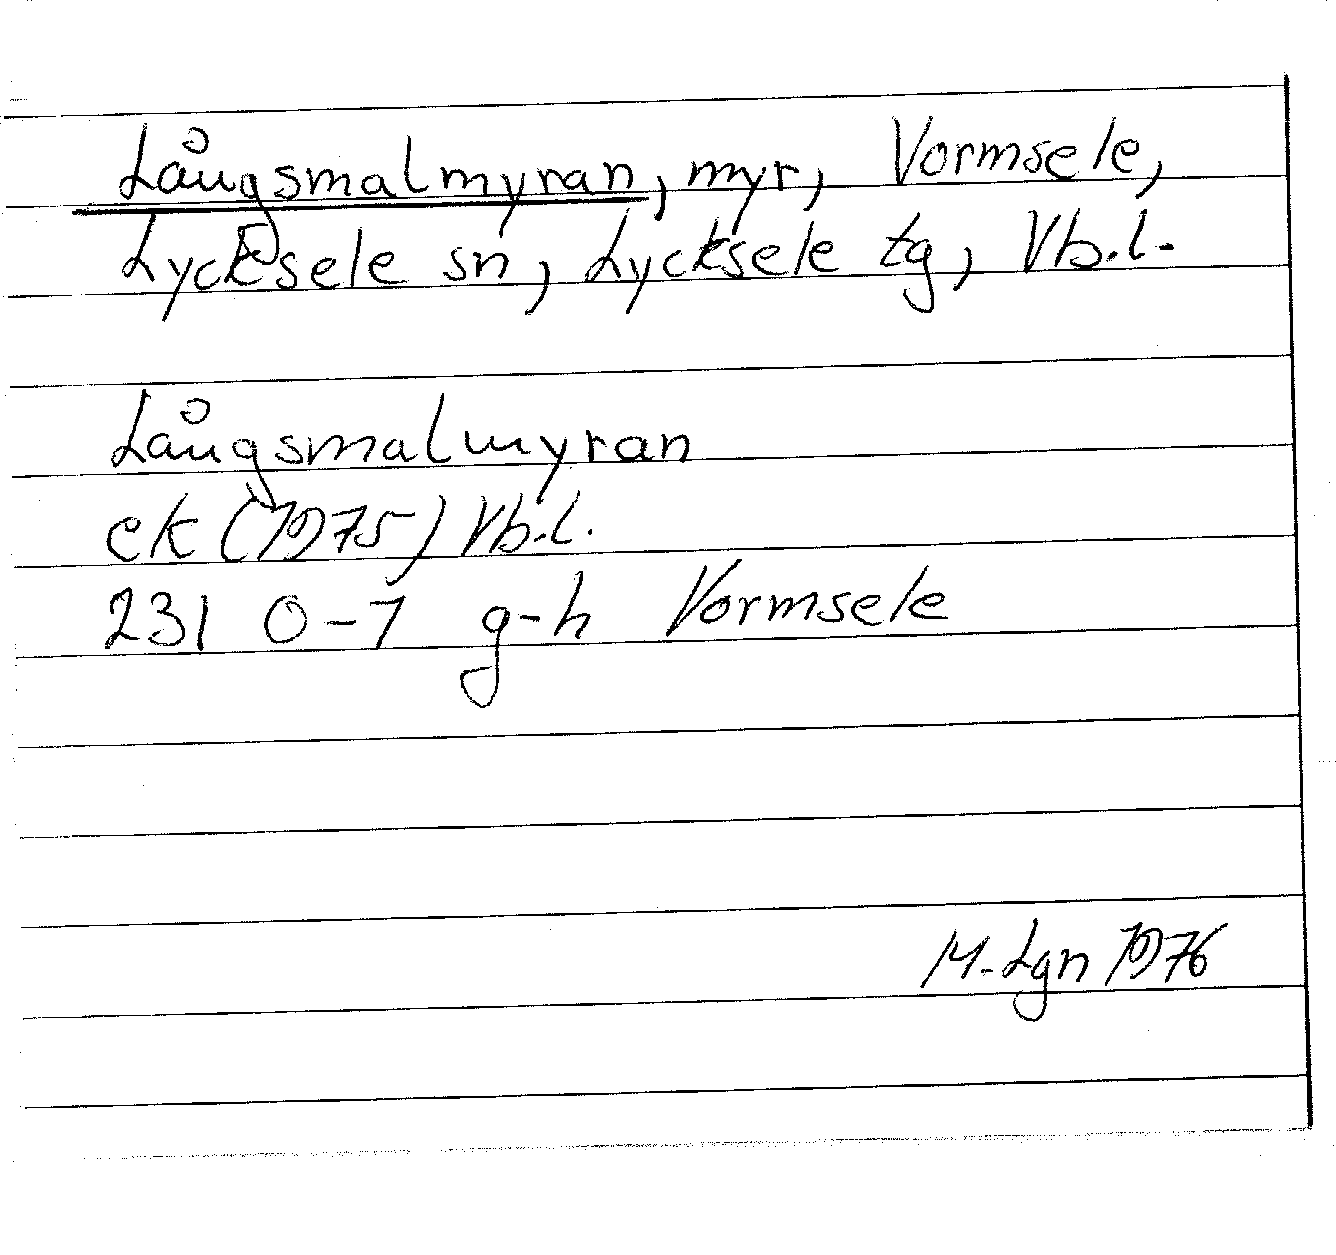 Långsmalmyran, myr, Vormsele,
Lycksele sn, Lycksele tg, Vb.l.
Långsmalmyran
ek (1975) Vb.l.
231 0-1 g-h Vormsele
M. Lgn 1976